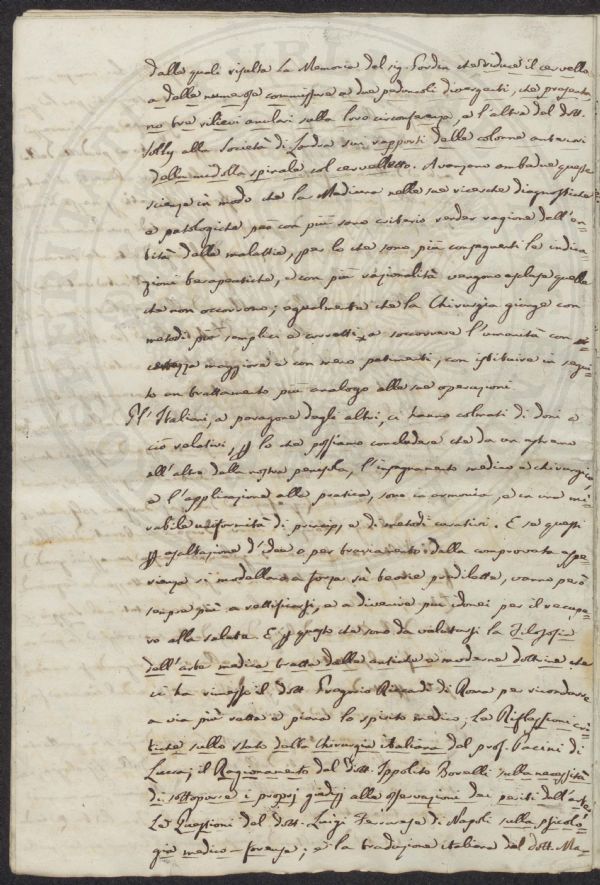 dalle quali risulta la Memoria del sig. Fordin che riduce il cervello
a delle numerose commissure e due peduncoli divergenti, che presenta-
no tre rilievi anulari sulla loro circonferenza, e l'altra del dott.
Solly alla Società di Londra sui rapporti delle colonne anteriori
della midolla spinale col cervelletto. Avanzano ambedue queste
scienze in modo che la Medicina nelle sue ricerche diagnostiche
e patologiche può con più sano criterio render ragione dell'en-
tità delle malattie, per lo che sono più conseguenti le indica-
zioni terapeutiche, e con più razionalità vengono escluse quelle
che non occorrono; egualmente che la Chirurgia giunge con
metodi più semplici e corretti a soccorrere l'umanità con
certezza maggiore e con meno patimenti, con istituire in segui-
to un trattamento più analogo alle sue operazioni.
Gl'Italiani, a paragone degli altri, ci hanno colmati di doni a
ciò relativi, per lo che possiamo concludere che da un estremo
all'altro della nostra penisola, l'insegnamento medico e chirurgico
e l'applicazione alla pratica, sono in armonia, e in una mi-
rabile uniformità di principj e di metodi curativi. E se questi
per esaltazione d'idee o per traviamento dalla comprovata espe-
rienza si modellano a forza sù teorie predilette, vanno però
sempre più a rettificarsi, e a divenire più idonei per il recupe-
ro alla salute. E per questo che sono da valutarsi la Filosofia
dell'arte medica tratta dalle antiche e moderne dottrine che
ci ha rimesso il dott. Riccardi di Roma per ricondurre
a via più retta e piana lo spirito medico; Le Riflessioni cri-
tiche sullo stato della Chirurgia italiana del prof. Pacini di
Lucca; il Ragionamento del dott. Ippolito Borelli sulla necessità
di sottoporre i proprj giudizj alle osservazioni dei periti dell'arte;
Le Questioni del dott. Luigi Ferrarese di Napoli sulla psicolo-
gia medico-forense; e la traduzione italiana del dott. Ma-